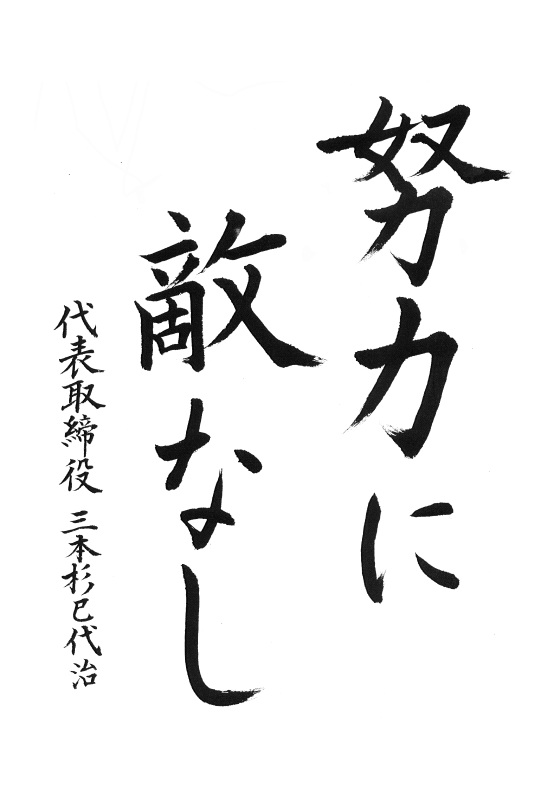 努力に
敵なし
代表取締役 三本杉巳代治